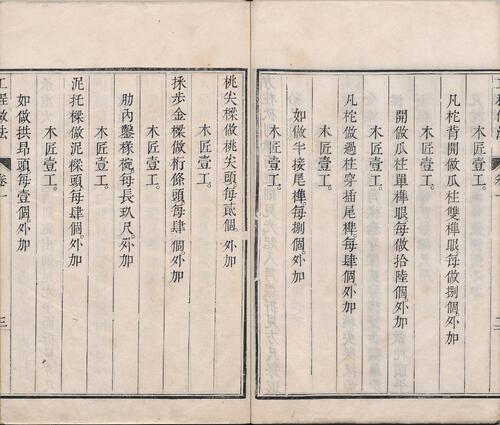 凡柁背開做瓜柱雙榫眼。每做捌個。外加
木匠壹工。
開做瓜柱單榫眼。每做拾陸個。外加
木匠壹工。
凡柁做過柱穿插尾榫。每肆個。外加
木匠壹工。
如做半接尾榫。每捌個。外加
木匠壹工。
桃尖樑做桃尖頭。每貳個。外加
木匠壹工。
採步金樑做桁條頭。每肆個。外加
木匠壹工。
肋內鑿椽椀。每長玖尺。外加
木匠壹工。
泥托樑做泥樑頭。每肆個。外加
木匠壹工。
如做拱昂頭。每壹個。外加
工程做法 卷一 三